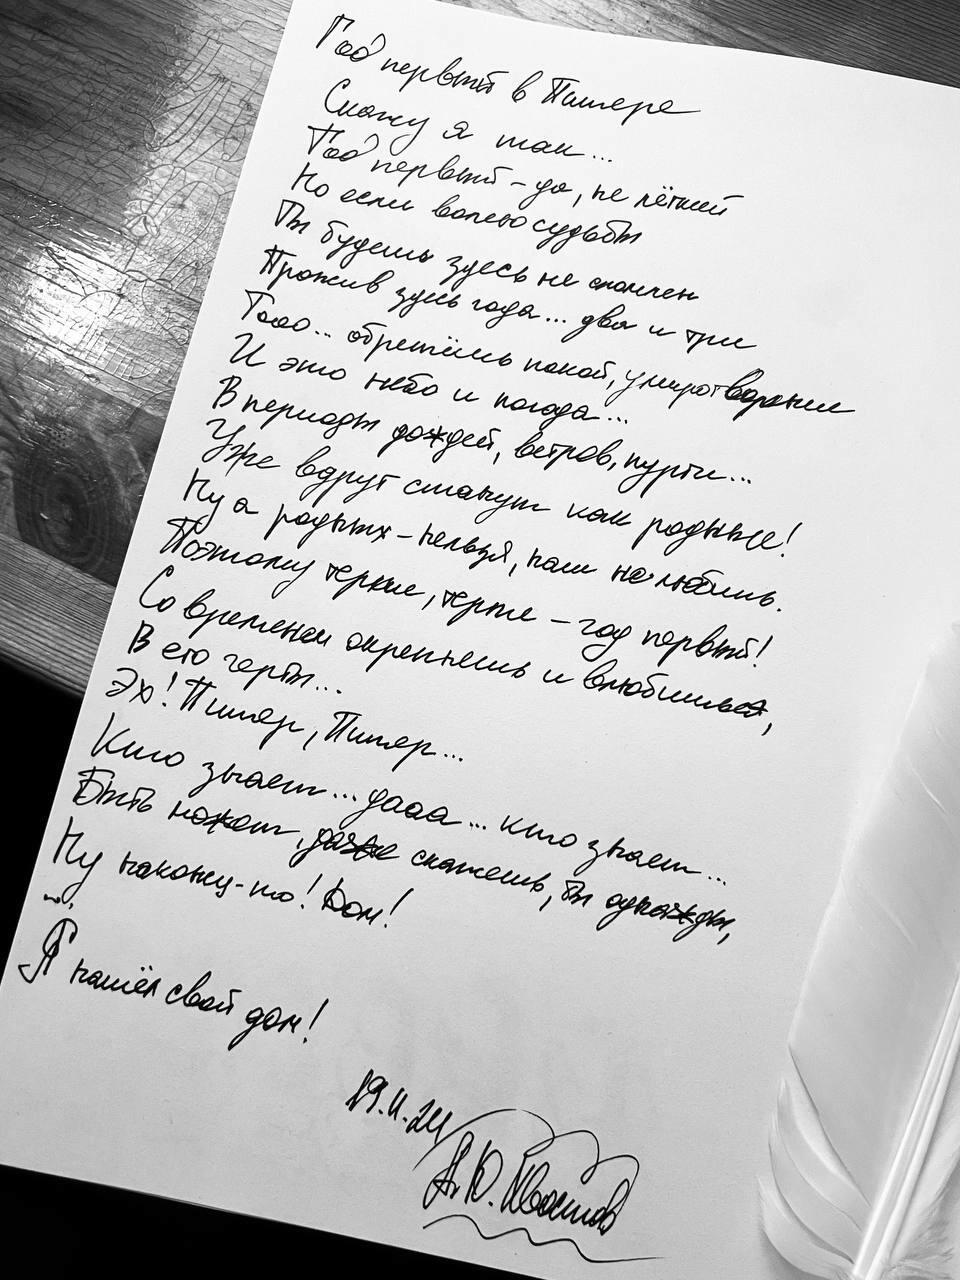 Год первый в Питере
Скажу я так...
Год первый - да, не лёгкий
Но если волею судьбы
Ты будешь здесь не сломлен
Прожив здесь года... два и три
Тооо.. обретёшь покой, умиротворение
И это небо и погода...
В периоды дождей, ветров, пурги...
Уже вдруг станут как родные!
Ну а родных - нельзя, каш не любишь.
Поэтому терпи, терпи - год первый!
Со временем окрепнешь и влюбишься,
В его черты...
Эх! Питер, Питер...
Кто знает... дааа... кто знает...
Быть может, даже скажешь, ты однажды,
Ну наконец-то! Дом!
...!
Я нашёл свой дом!
19.11.24
А.Ю. Хвостов